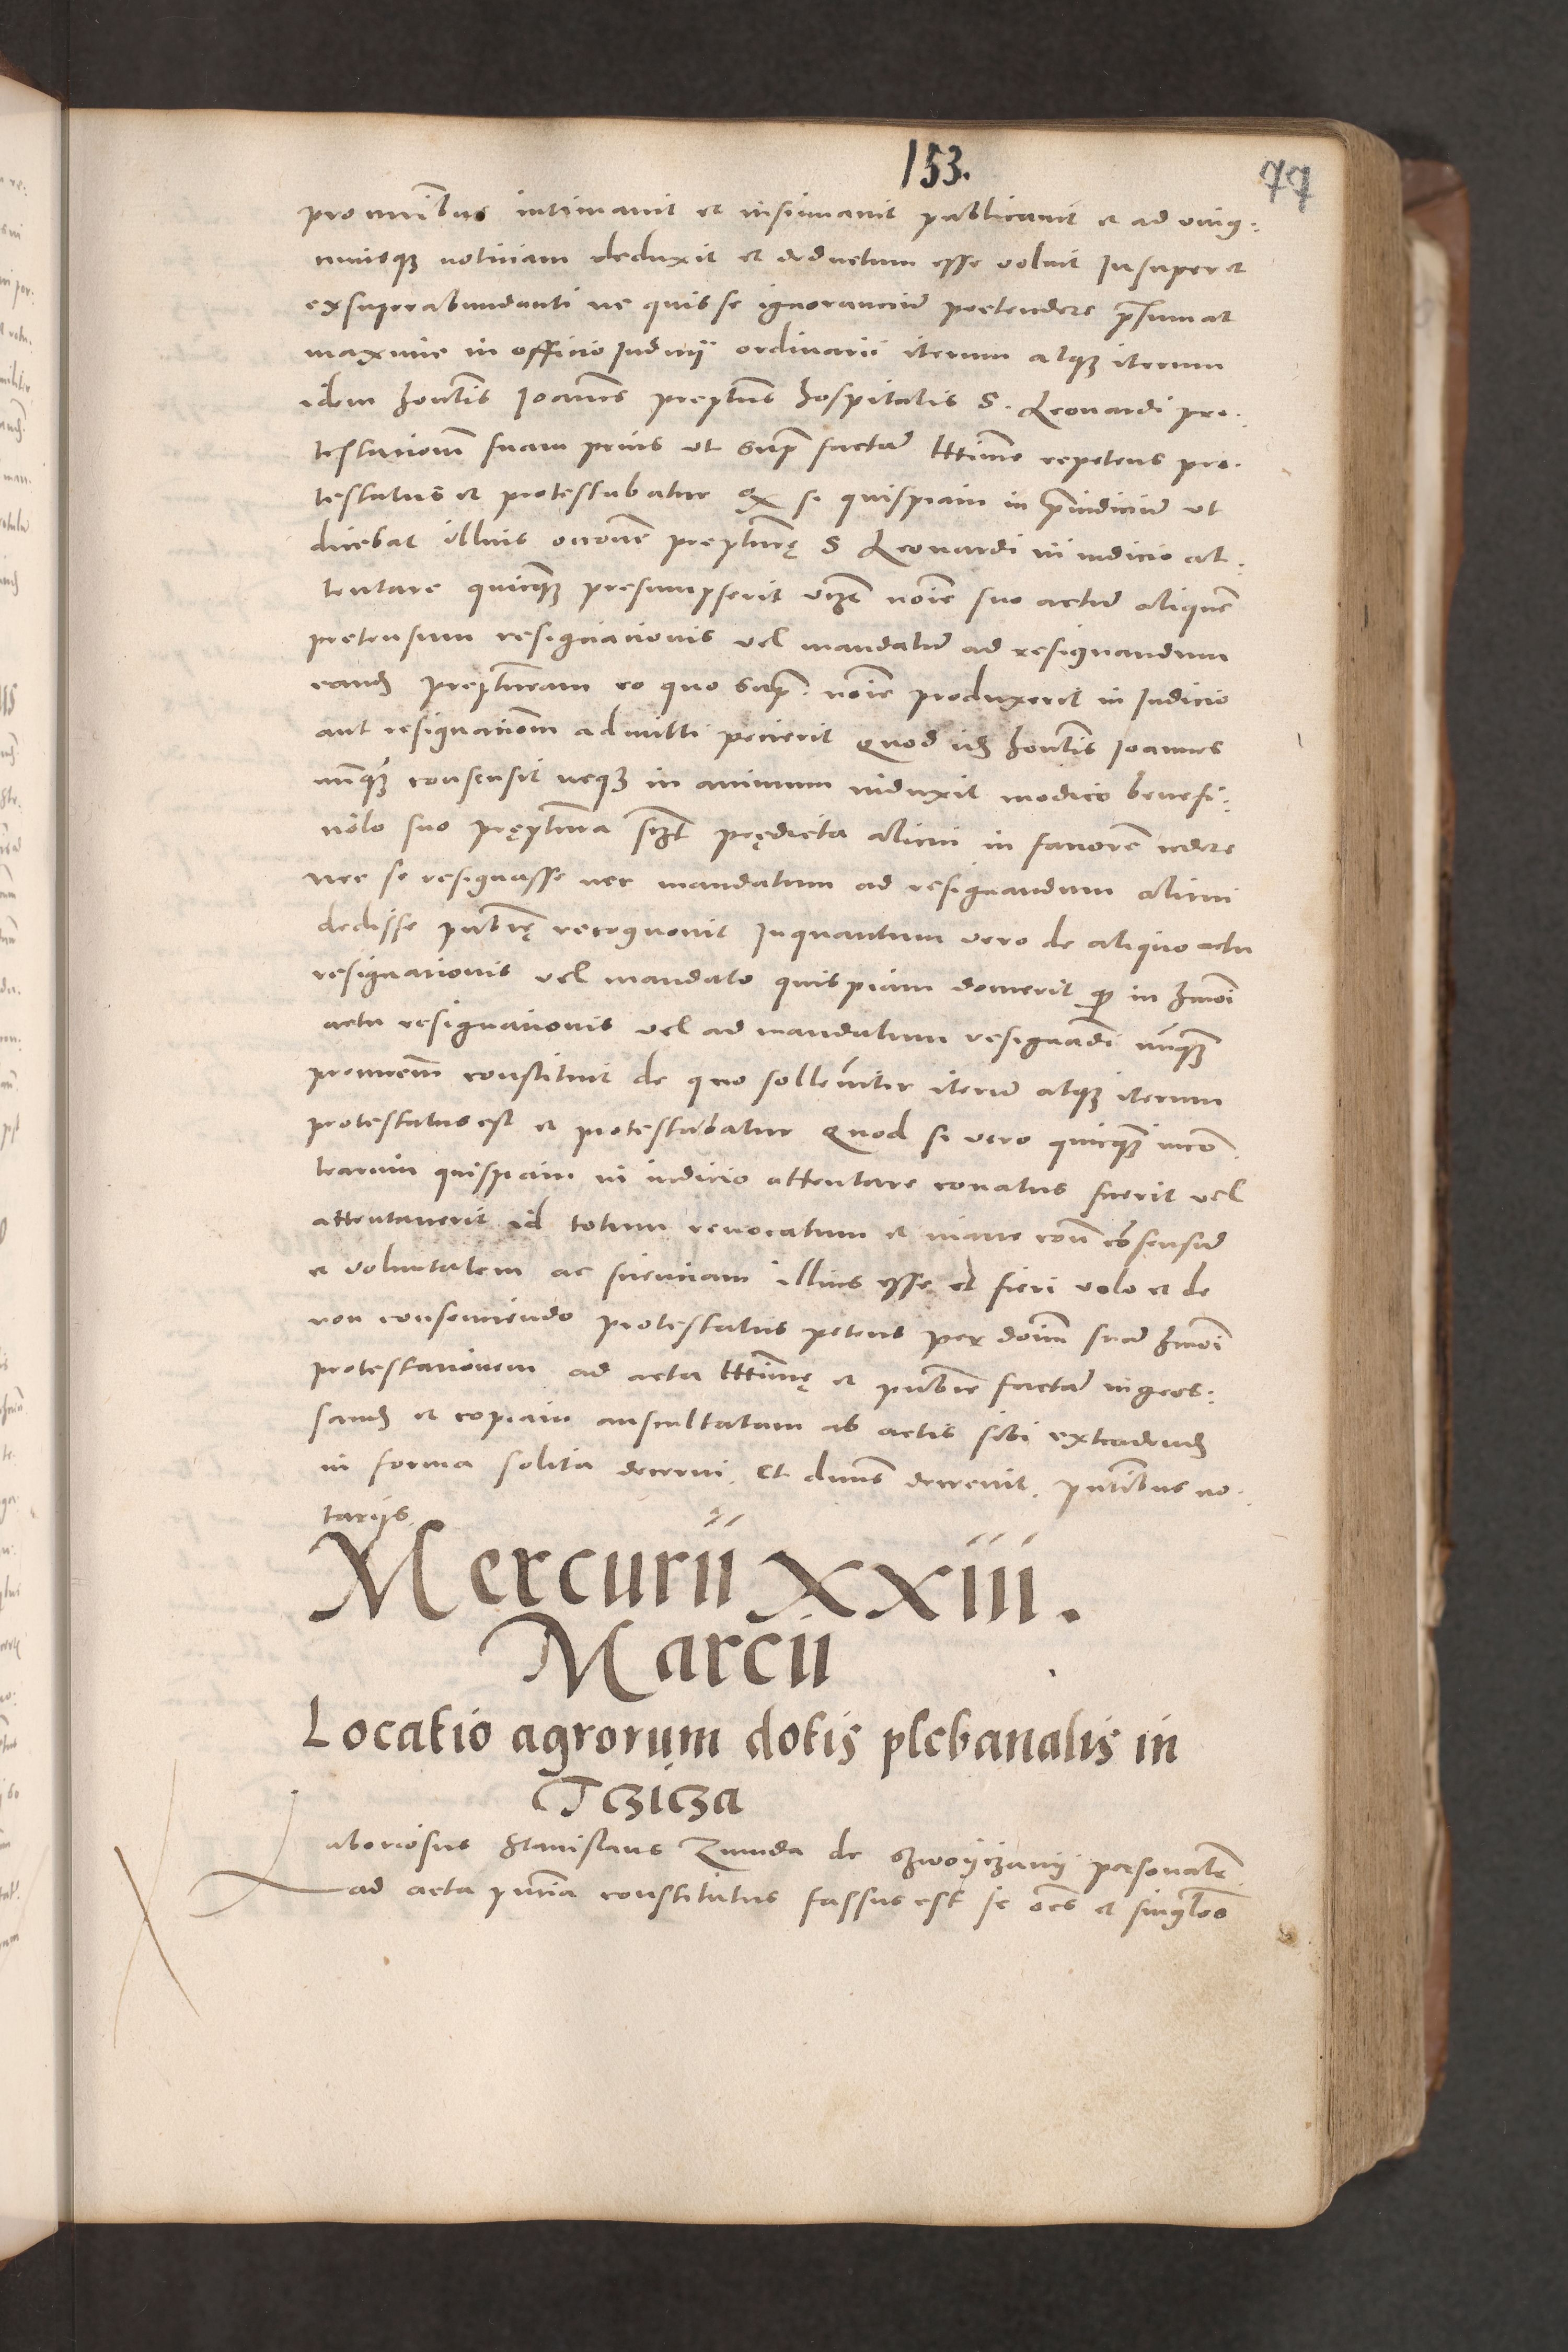 153.
77
pro omnibus intimavit et insinuavit publicavit et ad unius-
cuiusque noticiam deduxit et deductum esse voluit Insuper et
exsuperabundanti ne quis se ignorancium pretendere presumat
maxime in officio Iudicii ordinarii iterum atque iterum
idem hontis Ioannes prepetus hospitalis S. Leonardi pro-
testacionem suam prius ut supra factam repetens pro-
testatus et protestabatur quod si quispiam in preiudicium ut
dicebat illius S Leonardi in iudicio at-
tentare quicquam presumpserit nomine suo actum aliquem
pretensum resignacionis vel mandatum ad resignandum
eandem prepturam eo quo supra nomine produxerit in Iudicio
aut resignacionem admitti pecierit Quod idem hontis Ioannes
nunquam consensit neque in animum induxit modico benefi-
ciolo suo preptura predicta alicui in favorem cedere
nec se resignasse nec mandatum ad resignandum alicui
dedisse publice recognovit Inquantum vero de aliquo actu
resignacionis vel mandato quispiam docuerit quod in hmoi
actu resignacionis vel ad mandatum resignandi nunquam
procurem constituit de quo sollemniter iterum atque iterum
protestatus est et protestabatur Quod si vero quicquam incon-
trarium quispiam in iudicio attentare conatus fuerit vel
attentaverit id totum revocatum et inane contra consensum
et voluntatem ac scienciam illius esse et fieri volo et de
non consenciendo protestatus petens per dominum suam hmoi
protestacionem ad acta et publice factam ingros-
sandam et copiam auscultatam ab actis sibi extradendam
in forma solita decerni. Et dominus decrevit. presentibus no-
tariis.
Mercurii XXIII.
Marcii
Locatio agrorum dotis plebanalis in
Tczicza
Laboriosus Stanislaus Zmuda de personaliter
ad acta presencia constitutus fassus est se omnes et singulos